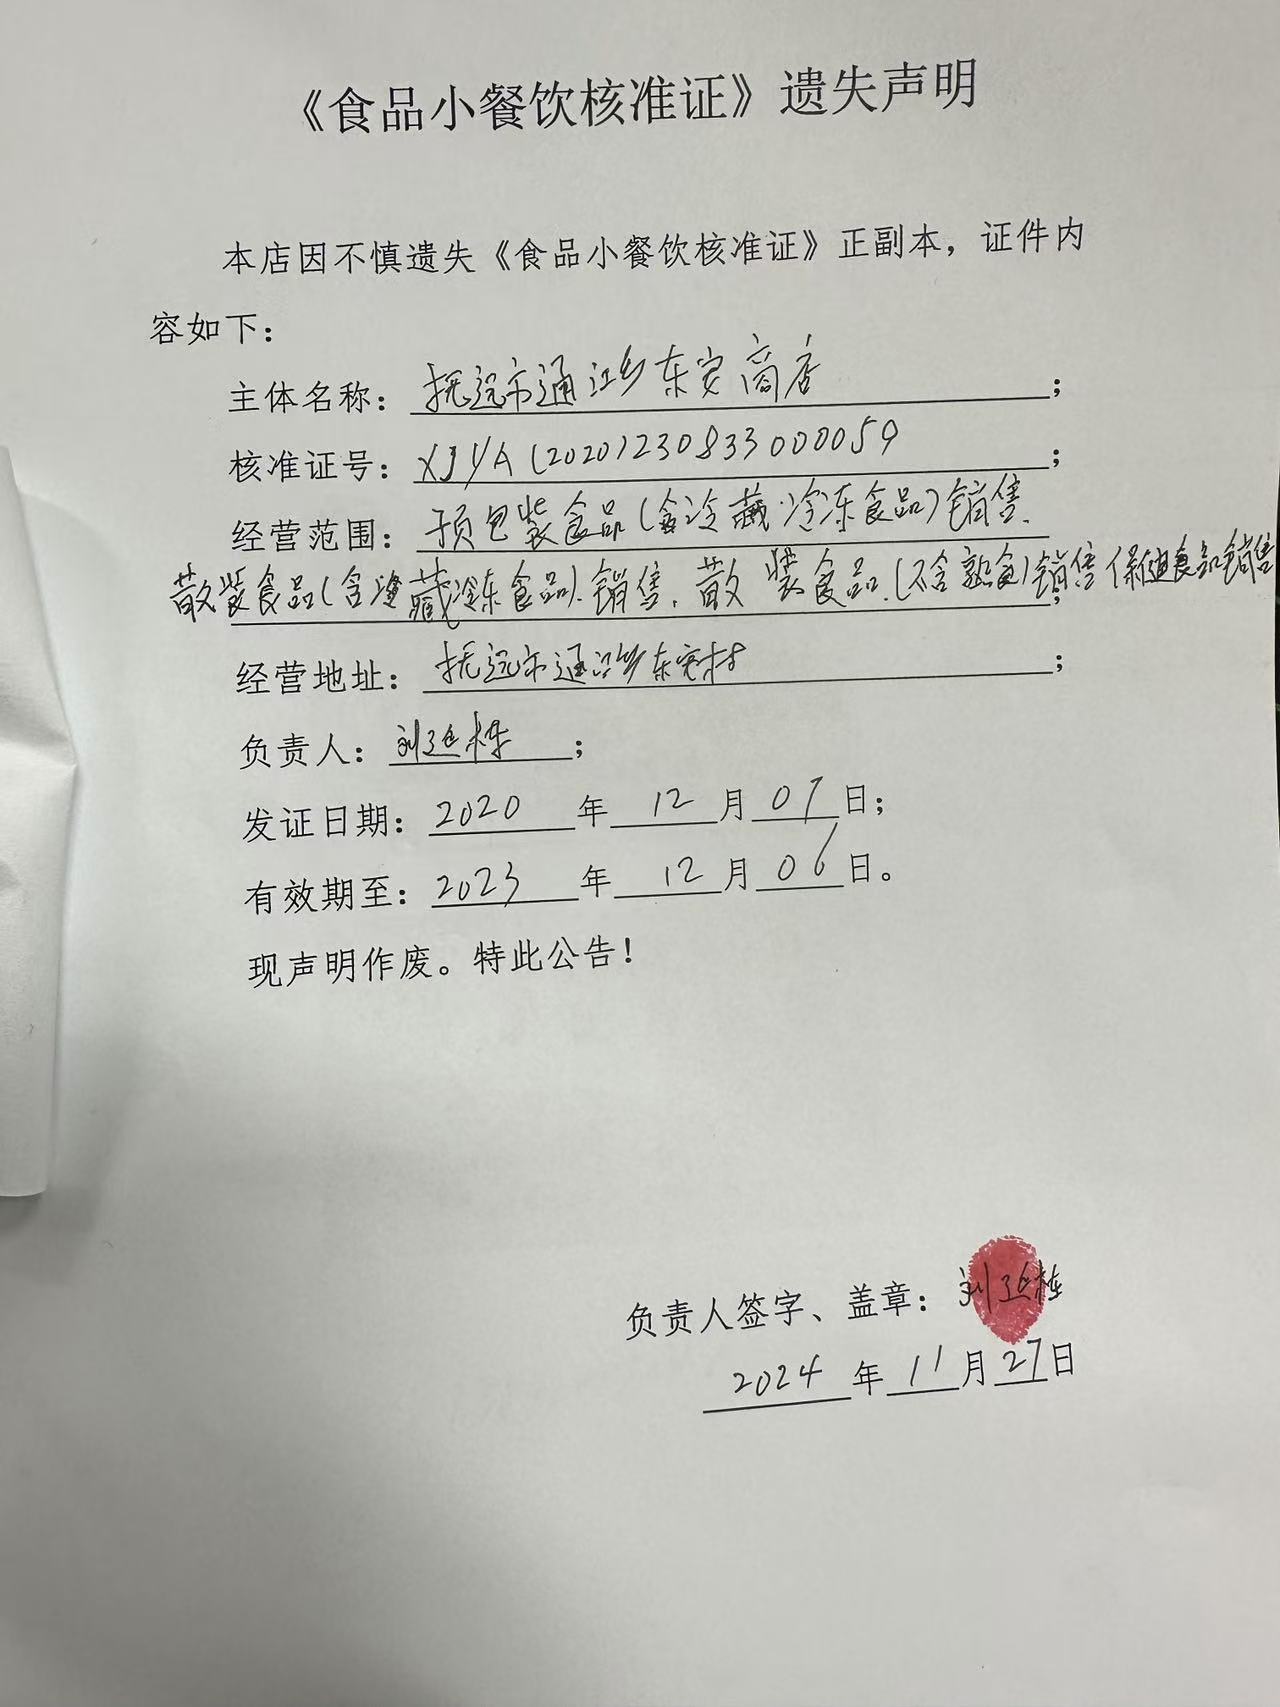 《食品小餐饮核准证》遗失声明
本店因不慎遗失《食品小餐饮核准证》正副本，证件内
容如下：
主体名称：抚远市通江乡东安商店；
核准证号：XJYA(2020)230833000059；
经营范围：预包装食品(含冷藏冷冻食品)销售、
散装食品(含冷藏冷冻食品)、销售、散装食品、(不含熟食)销售 保健食品销售；
经营地址：抚远市通江乡东安村；
负责人：刘延栋；
发证日期：2020年12月07日；
有效期至：2023年12月06日。
现声明作废。特此公告！
负责人签字、盖章：刘延栋
2024年11月27日